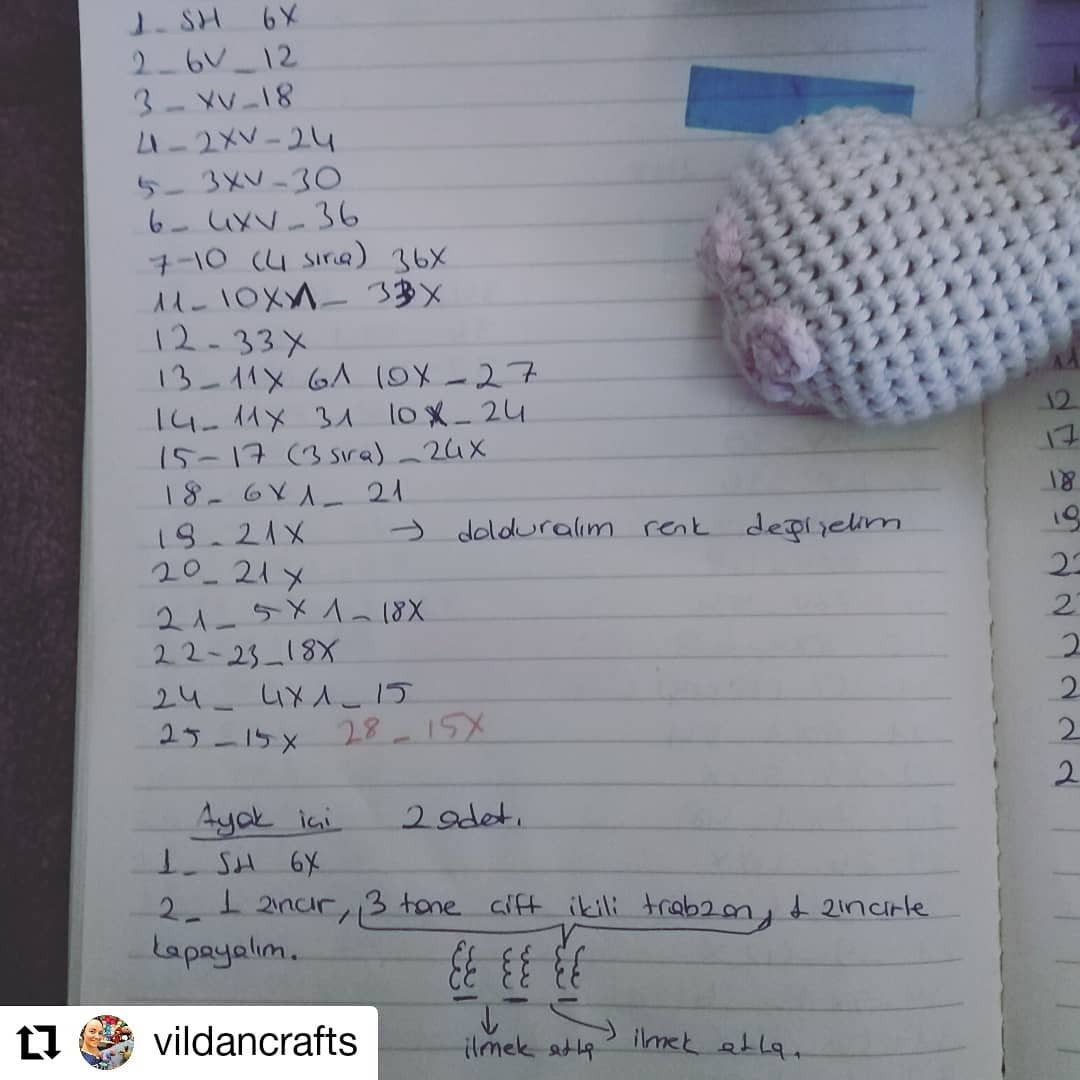 1- SH 6X
2- 6V - 12
3 - XV - 18
4 - 2XV - 24
5 - 3XV - 30
6 - 4XV - 36
7-10 (4 sıra) 36X
11 - 10XΛ - 33X
12 - 33X
13 - 11X 6Λ 10X - 27
14 - 11X 3Λ 10X - 24
15-17 (3 sıra) - 24X
18 - 6XΛ - 21
19 - 21X → dolduralım renk değişelim
20 - 21X
21 - 5XΛ - 18X
22-23 - 18X
24 - 4XΛ - 15
25 - 15X 28 - 15X
Ayak içi 2 adet.
1- SH 6X
2- 1 zincir, 3 tane çift ikili trabzan, 1 zincirle
kapayalım.
ilmek atla ilmek atla.
12
17
18
19
vildancrafts